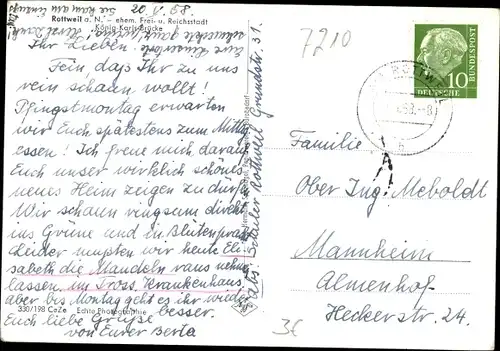 20. V. 58.
Rottweil a. N. – ehem. Frei- u. Reichsstadt
König-Karls-Brücke
Ihr Lieben!
Fein daß Ihr zu uns
rein schauen wollt!
Pfingstmontag erwarten
wir Euch spätestens zum Mittag
essen! Ich freue mich, darauf
Euch unser wirklich schönes
neues Heim zeigen zu dürfen
Wir schauen ringsum direkt
ins Grüne und in Blütenpracht
Leider mußten wir heute Eli-
sabeth die Mandeln raus nehmen
lassen, im Kranken­haus,
aber bis Montag geht es ihr wieder
besser.
Euch liebe Grüße
von Eurer Berta
330/198 CeZe Echte Photographie
Rottweil Grundstr. 31.
7210
DEUTSCHE BUNDESPOST
10
Familie
Ober Ing. Meboldt
Mannheim
Almenhof-
Heckerstr. 24.